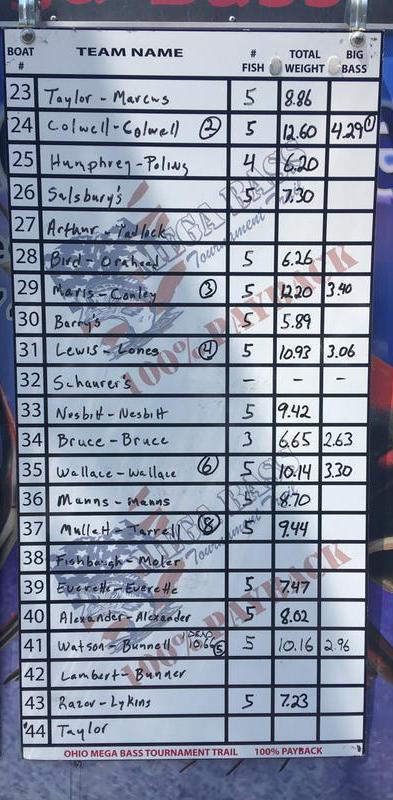 BOAT # TEAM NAME # FISH TOTAL WEIGHT BIG BASS
23 Taylor - Marcus 5 8.86
24 Colwell - Colwell ② 5 12.60 4.29 ①
25 Humphrey - Poling 4 6.20
26 Salsbury's 5 7.30
27 Arthur - Tadlock
28 Bird - Orahood 5 6.26
29 Maris - Conley ③ 5 12.20 3.40
30 Barry's 5 5.89
31 Lewis - Lones ④ 5 10.93 3.06
32 Schaurer's - - -
33 Nesbitt - Nesbitt 5 9.42
34 Bruce - Bruce 3 6.65 2.63
35 Wallace - Wallace ⑥ 5 10.14 3.30
36 Manns - Manns 5 8.70
37 Mullett - Tarrell ⑧ 5 9.44
38 Fishbaugh - Moler
39 Everette - Everette 5 7.47
40 Alexander - Alexander 5 8.02
41 Watson - Bunnell 10.66 ⑤ 5 10.16 2.96
42 Lambert - Bunner
43 Razor - Lykins 5 7.23
44 Taylor
MEGA BASS
Tournament Trail
100% PAYBACK
MEGA BASS
Tournament Trail
100% PAYBACK
OHIO MEGA BASS TOURNAMENT TRAIL 100% PAYBACK